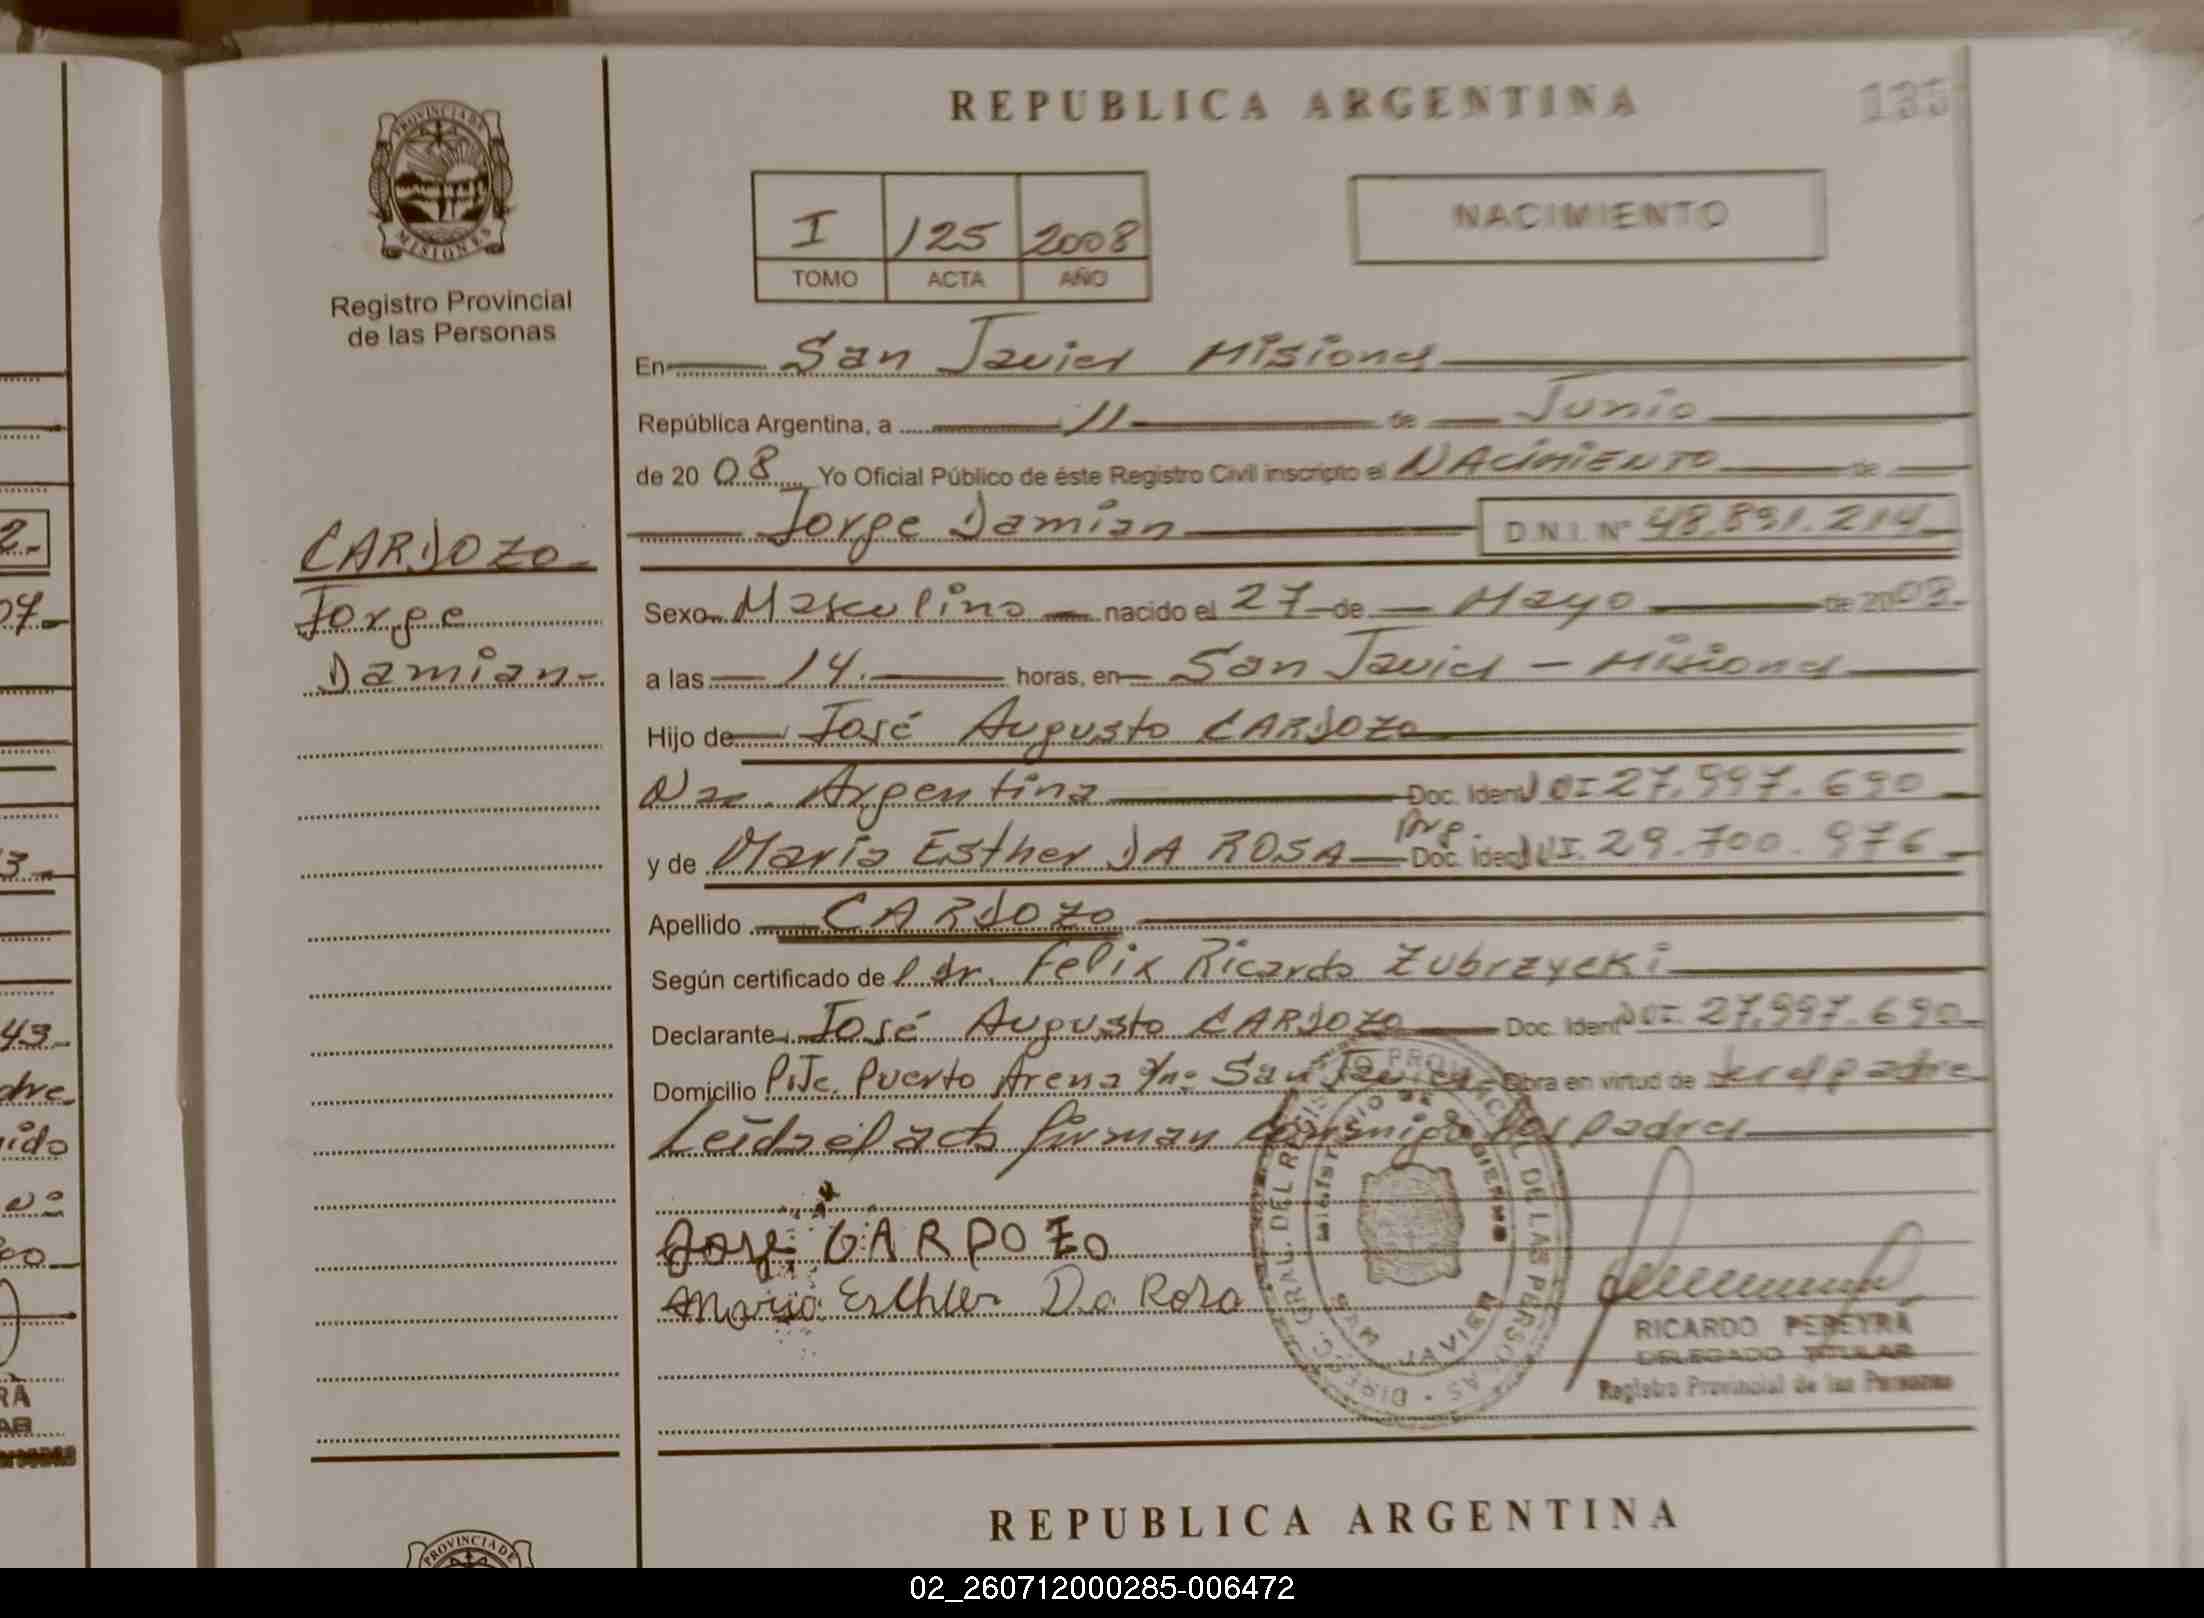 REPUBLICA ARGENTINA
135
PROVINCIA DE
MISIONES
Registro Provincial
de las Personas
I 125 2008
TOMO ACTA AÑO
NACIMIENTO
En San Javier Misiones
República Argentina, a 11 de Junio
de 20 08 Yo Oficial Público de éste Registro Civil inscripto el NACIMIENTO de
Jorge Damian D.N.I. Nº 48.891.214
CARDOZO
Jorge
Damian
Sexo Masculino nacido el 27 de Mayo de 2008
a las 14 horas, en San Javier - Misiones
Hijo de José Augusto CARDOZO
Nac. Argentina Doc. Ident DNI 27.997.690
Arg.
y de María Esther DA ROSA Doc. Ident DNI. 29.700.976
Apellido CARDOZO
Según certificado de l dr. Felix Ricardo Zubrzycki
Declarante José Augusto CARDOZO Doc. Ident DNI 27.997.690
Domicilio Pje. Puerto Arena s/nº San Javier Obra en virtud de ser el padre
Leída el acta firman conmigo los padres
José CARDOZO
Maria Esthler Da Rosa
DIRECC. GRAL. DEL REGISTRO PROVINCIAL DE LAS PERSONAS
MINISTERIO DE GOBIERNO
JAVIER
RICARDO PEREYRA
DELEGADO TITULAR
Registro Provincial de las Personas
REPUBLICA ARGENTINA
PROVINCIA DE
02_260712000285-006472